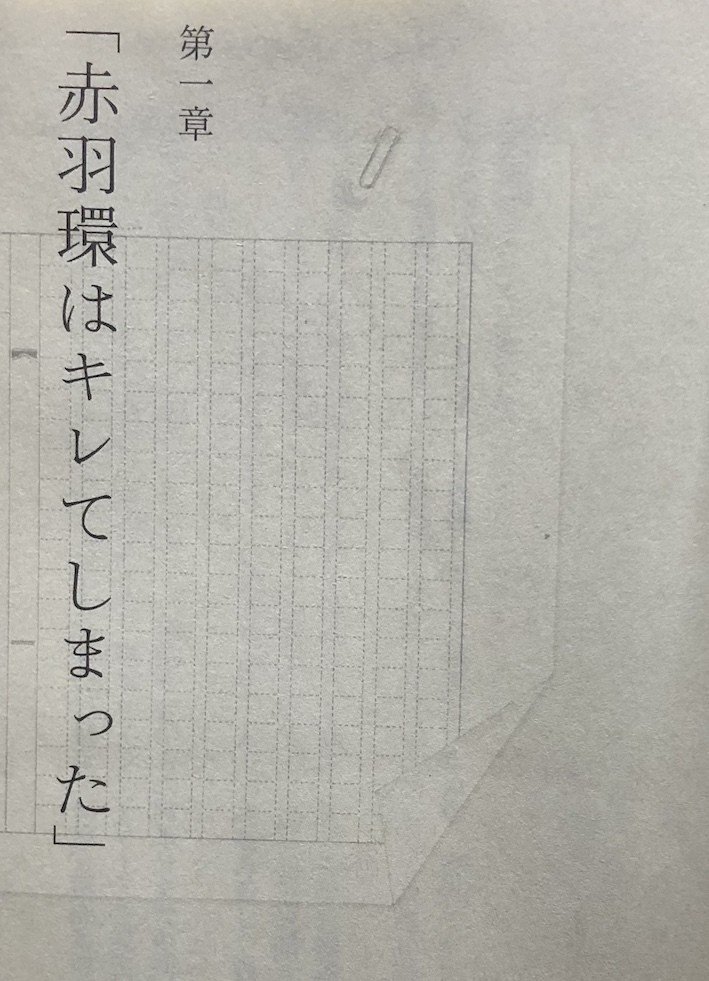 第一章
「赤羽環はキレてしまった」